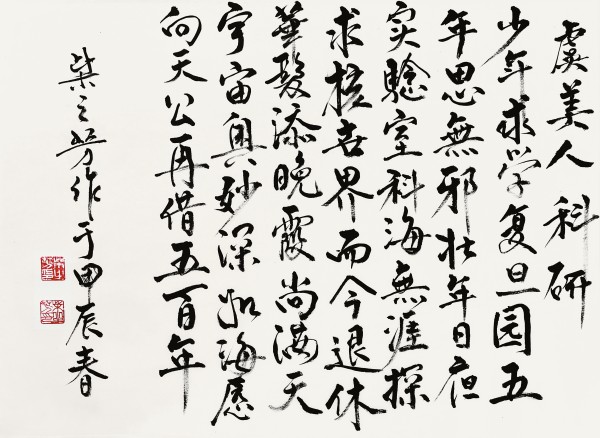 虞美人 科研
少年求学复旦园五
年思無邪壮年日夜
实騐室科海無涯探
求核世界而今退休
華髮添晚霞尚满天
宇宙奥妙深如海愿
向天公再借五百年
柴之芳作于甲辰春